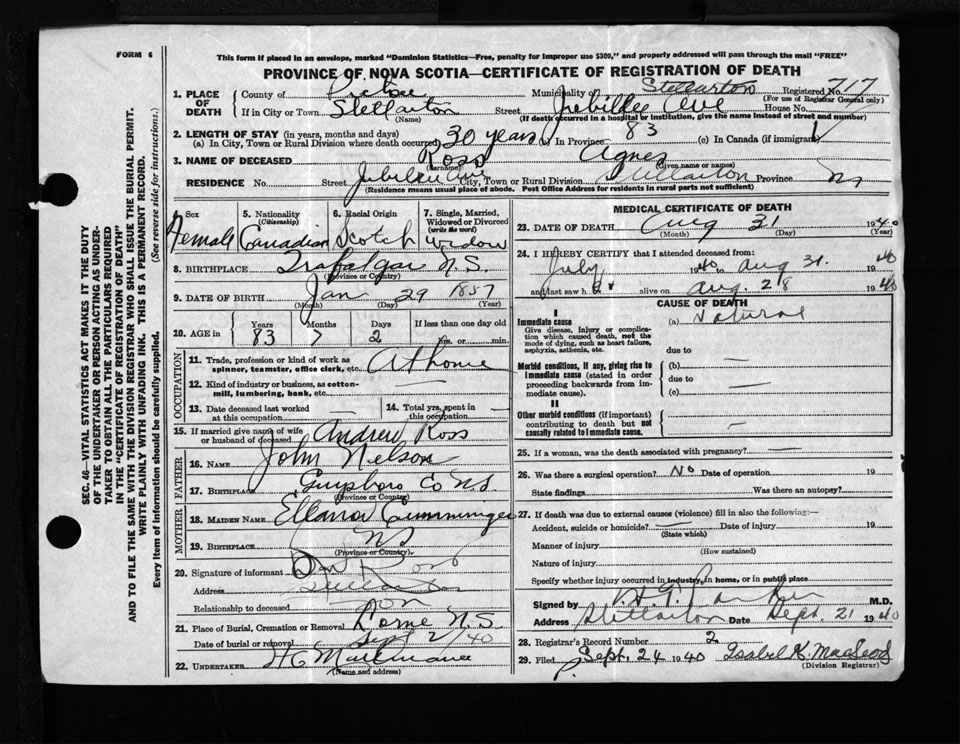 FORM 6
This form if placed in an envelope, marked "Dominion Statistics—Free, penalty for improper use $300," and properly addressed will pass through the mail "FREE"
PROVINCE OF NOVA SCOTIA—CERTIFICATE OF REGISTRATION OF DEATH
1. PLACE OF DEATH County of Pictou Municipality of Stellarton Registered No. 717
(For use of Registrar General only)
If in City or Town Stellarton Street Jubilee Ave House No.
(Name) (If death occurred in a hospital or institution, give the name instead of street and number)
2. LENGTH OF STAY (in years, months and days)
(a) In City, Town or Rural Division where death occurred 30 years (b) In Province 83 (c) In Canada (if immigrant)
3. NAME OF DECEASED Ross Agnes
(Surname) (Given name or names)
RESIDENCE No. Street Jubilee Ave City, Town or Rural Division Stellarton Province NS
(Residence means usual place of abode. Post Office Address for residents in rural parts not sufficient)
4. Sex 5. Nationality (Citizenship) 6. Racial Origin 7. Single, Married, Widowed or Divorced (write the word)
Female Canadian Scotch Widow
8. BIRTHPLACE Trafalgar N.S.
(Province or Country)
9. DATE OF BIRTH Jan 29 1857
(Month) (Day) (Year)
10. AGE in Years Months Days If less than one day old
83 7 2 hrs. or min.
OCCUPATION
11. Trade, profession or kind of work as spinner, teamster, office clerk, etc. At home
12. Kind of industry or business, as cotton-mill, lumbering, bank, etc. —
13. Date deceased last worked at this occupation — 14. Total yrs. spent in this occupation —
15. If married give name of wife or husband of deceased Andrew Ross
FATHER
16. NAME John Nelson
17. BIRTHPLACE Guysboro Co N.S.
(Province or Country)
MOTHER
18. MAIDEN NAME Elleanor Cumminger
19. BIRTHPLACE NS
(Province or Country)
20. Signature of informant Ross
Address Stellarton
Relationship to deceased Son
21. Place of Burial, Cremation or Removal Lorne N.S.
Date of burial or removal Sept 2/40
22. UNDERTAKER
(Name and address)
MEDICAL CERTIFICATE OF DEATH
23. DATE OF DEATH Aug 31 1940
(Month) (Day) (Year)
24. I HEREBY CERTIFY that I attended deceased from:
July 1940 to Aug 31. 1940
and last saw her alive on Aug. 28 1940
CAUSE OF DEATH
I
Immediate cause (a) Natural
Give disease, injury or complication which caused death, not the mode of dying, such as heart failure, asphyxia, asthenia, etc.
due to —
Morbid conditions, if any, giving rise to immediate cause (stated in order proceeding backwards from immediate cause).
(b) —
due to —
(c) —
II
Other morbid conditions (if important) contributing to death but not causally related to immediate cause.
25. If a woman, was the death associated with pregnancy? —
26. Was there a surgical operation? No Date of operation 19
State findings Was there an autopsy?
27. If death was due to external causes (violence) fill in also the following:—
Accident, suicide or homicide? — Date of injury 19
(State which)
Manner of injury
(How sustained)
Nature of injury
Specify whether injury occurred in industry, in home, or in public place
Signed by M.D.
Address Stellarton Date Sept. 21 1940
28. Registrar's Record Number 2
29. Filed Sept. 24 1940 Isabel K. MacLeod
(Division Registrar)
SEC. 46—VITAL STATISTICS ACT MAKES IT THE DUTY
OF THE UNDERTAKER OR PERSON ACTING AS UNDER-
TAKER TO OBTAIN ALL THE PARTICULARS REQUIRED
IN THE "CERTIFICATE OF REGISTRATION OF DEATH"
AND TO FILE THE SAME WITH THE DIVISION REGISTRAR WHO SHALL ISSUE THE BURIAL PERMIT.
WRITE PLAINLY WITH UNFADING INK. THIS IS A PERMANENT RECORD.
Every item of information should be carefully supplied. (See reverse side for instructions.)